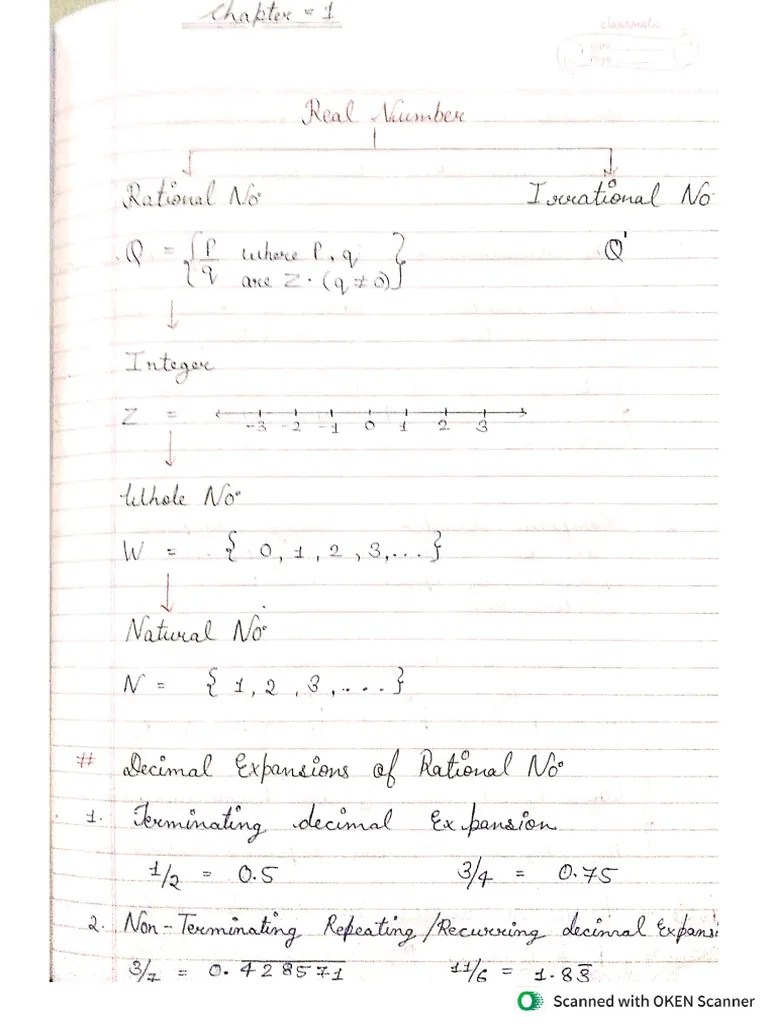 Chapter = 1
classmate
Real Number
Rational No. Irrational No.
Q = {P/q where P, q are Z. (q ≠ 0)} Q'
Integer
Z = -3 -2 -1 0 1 2 3
Whole No.
W = { 0, 1, 2, 3, ... }
Natural No.
N = { 1, 2, 3, .... }
# Decimal Expansions of Rational No.
1. Terminating decimal Expansion
1/2 = 0.5 3/4 = 0.75
2. Non-Terminating Repeating/Recurring decimal Expansi
3/7 = 0.4̅2̅8̅5̅7̅1̅ 11/6 = 1.83̅
Scanned with OKEN Scanner